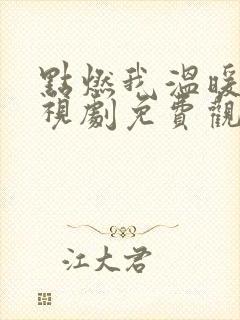 點燃我,溫暖
視劇免費觀
江大君